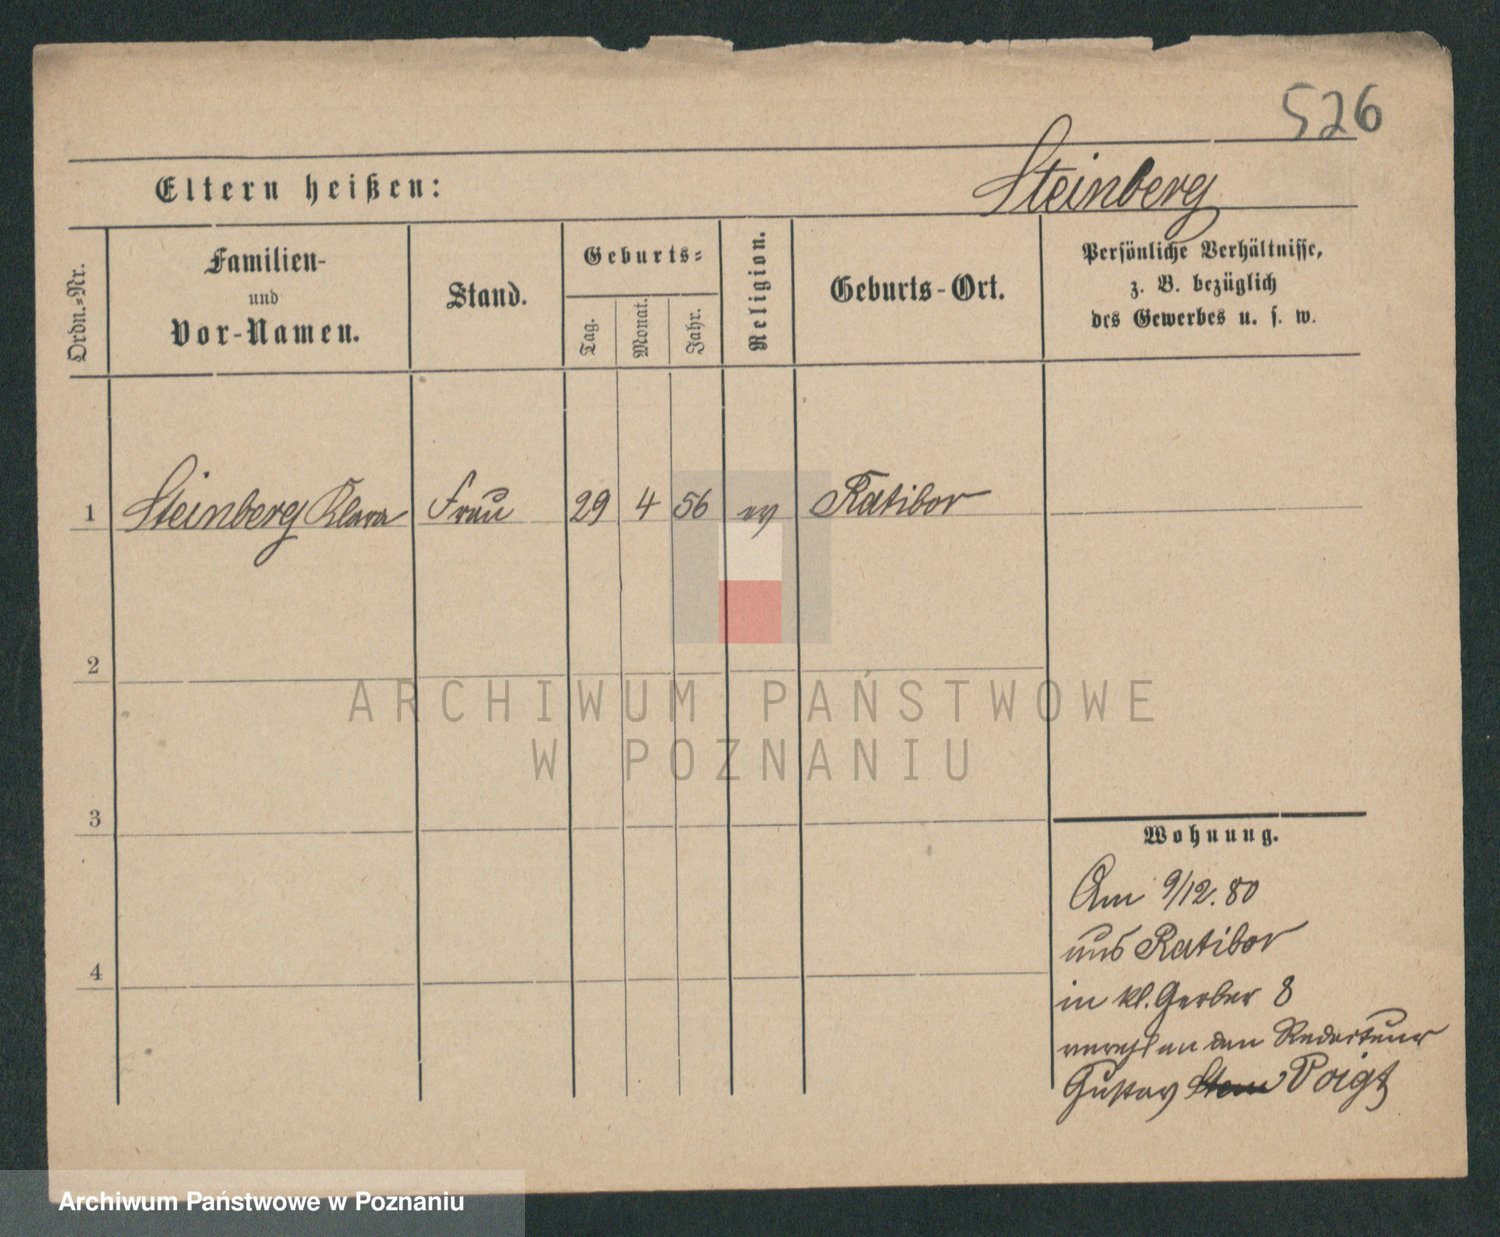 526
Eltern heißen:
Steinberg
Ordn.-Nr.
Familien-
und
Vor-Namen.
Stand.
Geburts-
Tag.
Monat.
Jahr.
Religion.
Geburts-Ort.
Persönliche Verhältnisse,
z. B. bezüglich
des Gewerbes u. s. w.
1 Steinberg Klara Frau 29 4 56 ev Ratibor
2
ARCHIWUM PAŃSTWOWE
W POZNANIU
3
Wohnung.
Am 9/12. 80
aus Ratibor
4
in kl. Gerber 8
an den Redacteur
Gustav Voigt
Archiwum Państwowe w Poznaniu